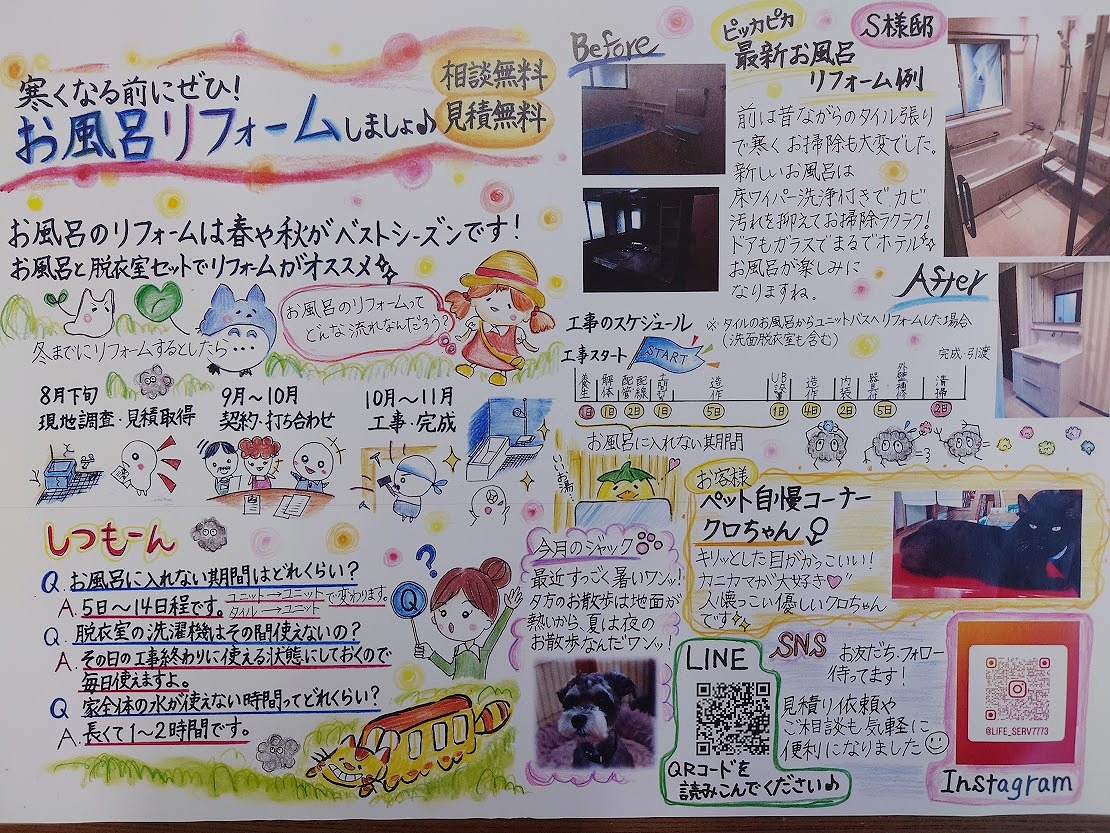 寒くなる前にぜひ!
お風呂リフォームしましょ♪
相談無料
見積無料
お風呂のリフォームは春や秋がベストシーズンです!
お風呂と脱衣室セットでリフォームがオススメ
お風呂のリフォームって
どんな流れなんだろう?
冬までにリフォームするとしたら…
8月下旬
現地調査・見積取得
9月〜10月
契約・打ち合わせ
10月〜11月
工事・完成
しつもーん
Q. お風呂に入れない期間はどれくらい?
A. 5日〜14日程です。ユニット→ユニット
タイル→ユニット
で変わります。
Q. 脱衣室の洗濯機はその間使えないの?
A. その日の工事終わりに使える状態にしておくので
毎日使えますよ。
Q 家全体の水が使えない時間ってどれくらい?
A. 長くて1〜2時間です。
?
Q
Before
ピッカピカ
最新お風呂
リフォーム例
S様邸
前は昔ながらのタイル張り
で寒くお掃除も大変でした。
新しいお風呂は
床ワイパー洗浄付きでカビ
汚れを抑えてお掃除ラクラク!
ドアもガラスでまるでホテル
お風呂が楽しみに
なりますね。
After
工事のスケジュール
※タイルのお風呂からユニットバスへリフォームした場合
(洗面脱衣室も含む)
工事スタート
START
完成・引渡
養生
解体
配管
配線
土間打
造作
UB設置
造作
内装
器具付
外壁補修
清掃
1日
1日
2日
1日
5日
1日
4日
2日
5日
2日
お風呂に入れない期間
いいお湯…
今月のジャック
最近すっごく暑いワンッ!
夕方のお散歩は地面が
熱いから、夏は夜の
お散歩なんだワンッ!
お客様
ペット自慢コーナー
クロちゃん♀
キリッとした目がかっこいい!
カニカマが大好き♥
人懐っこい優しいクロちゃん
です
LINE
QRコードを
読みこんでください♪
SNS
お友だち・フォロー
待ってます!
見積り依頼や
ご相談も気軽に
便利になりました
@LIFE_SERV7773
Instagram